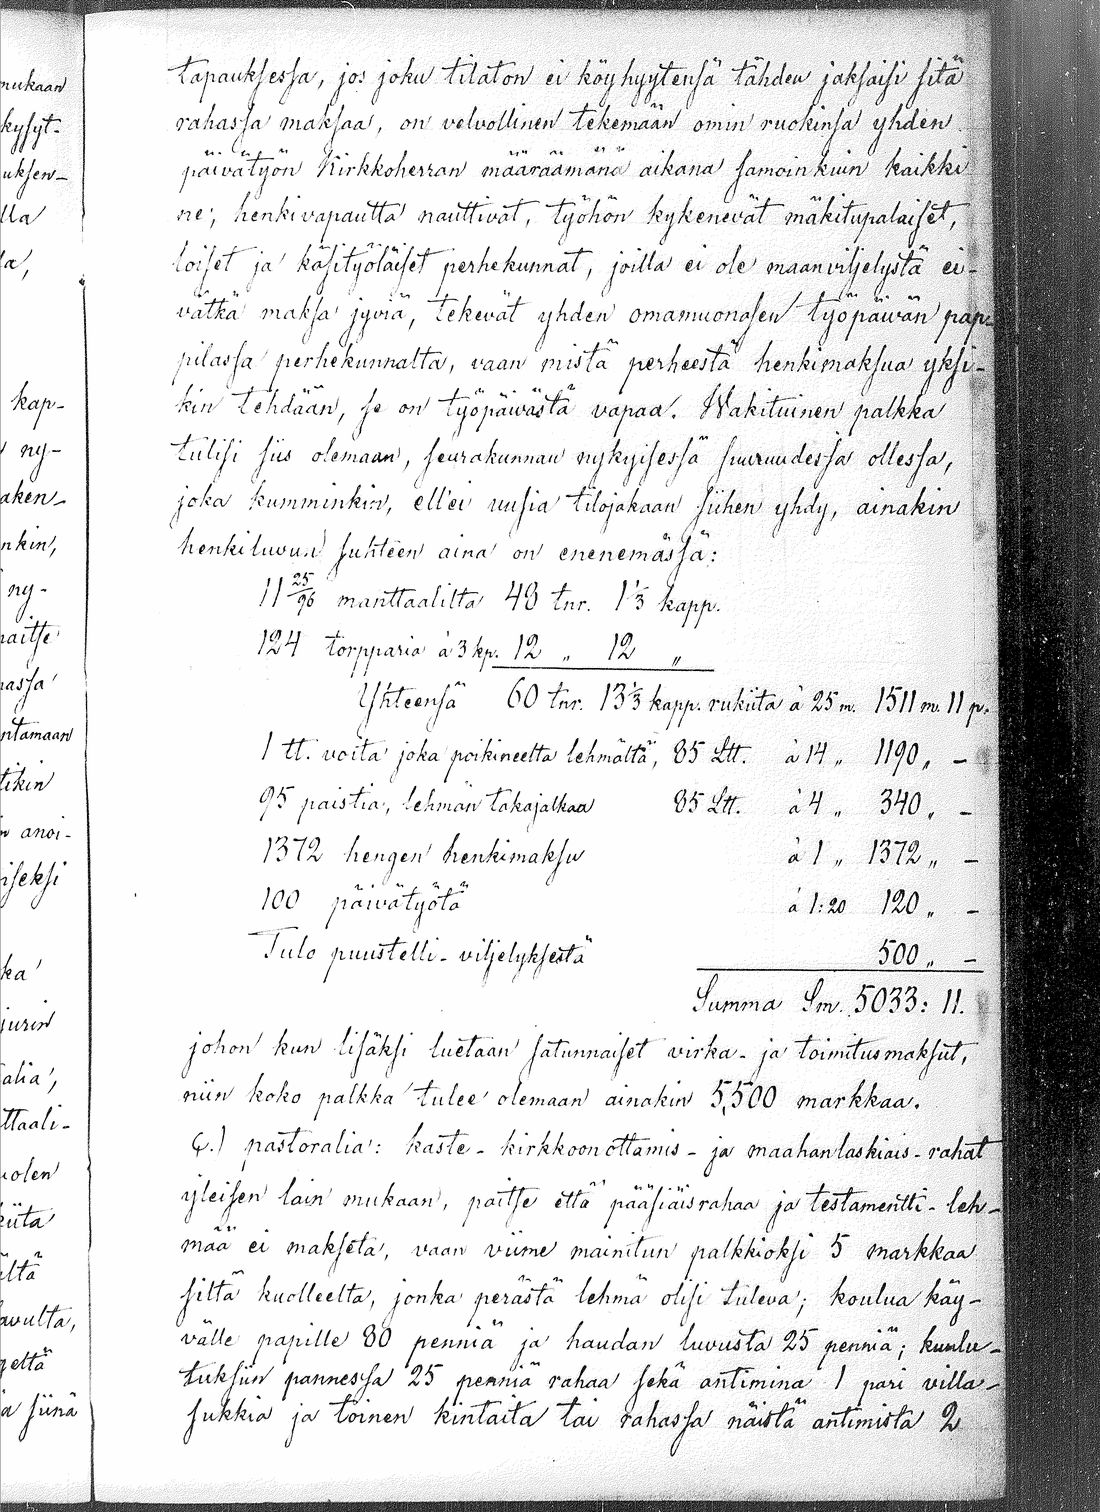 mukaan
kysyt-
uksen-
lla
la,
kap-
ny-
aken-
nkin,
ny-
naitse
hassa
ntamaan
tikin
anoi-
iseksi
ka
jurin
alia,
ttaali-
uolen
kiita
iltä
avulta,
että
siinä
tapauksessa, jos joku tilaton ei köyhyytensä tähden jaksaisi sitä
rahassa maksaa, on velvollinen tekemään omin ruokinsa yhden
päivätyön Kirkkoherran määräämänä aikana samoinkuin kaikki
ne, henkivapautta nauttivat, työhön kykenevät mäkitupalaiset,
loiset ja käsityöläiset perhekunnat, joilla ei ole maanviljelystä ei-
vätkä maksa jyviä, tekevät yhden omamuonasen työpäivän pap-
pilassa perhekunnalta, vaan mistä perheestä henkimaksua yksi-
kin tehdään, se on työpäivästä vapaa. Wakituinen palkka
tulisi siis olemaan, seurakunnan nykyisessä suuruudessa ollessa,
joka kumminkin, ellei uusia tilojakaan siihen yhdy, ainakin
henkiluvun suhteen aina on enenemässä:
11 25/96 manttaalilta 48 tnr. 1 1/3 kapp.
124 torpparia à 3 kp. 12 „ 12 „
Yhteensä 60 tnr. 13 1/3 kapp. rukiita à 25 m. 1511 m. 11 p.
1 tt. voita joka poikineelta lehmältä, 85 Ltt. à 14 „ 1190 „ -
95 paistia, lehmän takajalkaa 85 Ltt. à 4 „ 340 „ -
1372 hengen henkimaksu à 1 „ 1372 „ -
100 päivätyötä á 1:20 120 „ -
Tulo puustelli-viljelyksestä 500 „ -
Summa Sm. 5033: 11.
johon kun lisäksi luetaan satunnaiset virka- ja toimitusmaksut,
niin koko palkka tulee olemaan ainakin 5,500 markkaa.
C.) pastoralia: kaste- kirkkoonottamis- ja maahanlaskiais-rahat
yleisen lain mukaan, paitse että pääsiäisrahaa ja testamentti-leh-
mää ei makseta, vaan viime mainitun palkkioksi 5 markkaa
siltä kuolleelta, jonka perästä lehmä olisi tuleva; koulua käy-
välle papille 80 penniä ja haudan luvusta 25 penniä; kuulu-
tuksiin pannessa 25 penniä rahaa sekä antimina 1 pari villa-
sukkia ja toinen kintaita tai rahassa näistä antimista 2